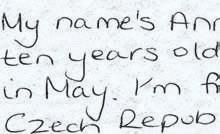 My name's Ann
ten years old
in May. I'm f
Czech Repub